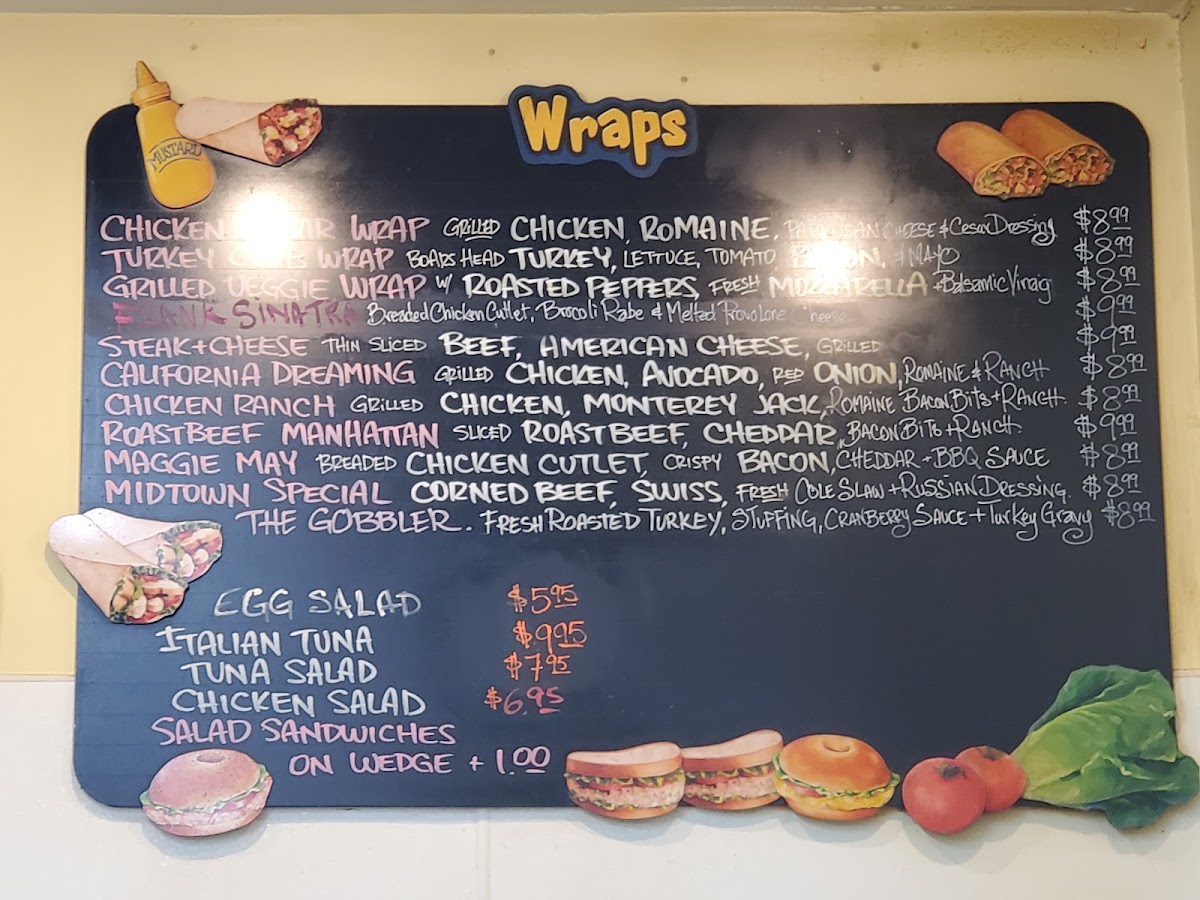 Wraps
MUSTARD
CHICKEN WRAP GRILLED CHICKEN, ROMAINE, CHEESE & Cesar Dressing $8.99
TURKEY WRAP BOARS HEAD TURKEY, LETTUCE, TOMATO & MAYO $8.99
GRILLED VEGGIE WRAP W/ ROASTED PEPPERS, FRESH MOZZARELLA + Balsamic Vinaig $8.99
FRANK SINATRA Breaded Chicken Cutlet, Brocoli Rabe & Melted Provolone Cheese $9.99
STEAK + CHEESE THIN SLICED BEEF, AMERICAN CHEESE, GRILLED $9.99
CALIFORNIA DREAMING GRILLED CHICKEN, AVOCADO, RED ONION, ROMAINE & RANCH $8.99
CHICKEN RANCH GRILLED CHICKEN, MONTEREY JACK, ROMAINE BACON BITS + RANCH. $8.99
ROASTBEEF MANHATTAN SLICED ROASTBEEF, CHEDDAR, BACON BITS + RANCH. $9.99
MAGGIE MAY BREADED CHICKEN CUTLET, CRISPY BACON, CHEDDAR + BBQ SAUCE $8.99
MIDTOWN SPECIAL CORNED BEEF, SWISS, FRESH COLE SLAW + RUSSIAN DRESSING. $8.99
THE GOBBLER. FRESH ROASTED TURKEY, STUFFING, CRANBERRY SAUCE + Turkey Gravy $8.99
EGG SALAD $5.95
ITALIAN TUNA $9.95
TUNA SALAD $7.95
CHICKEN SALAD $6.95
SALAD SANDWICHES
ON WEDGE + 1.00